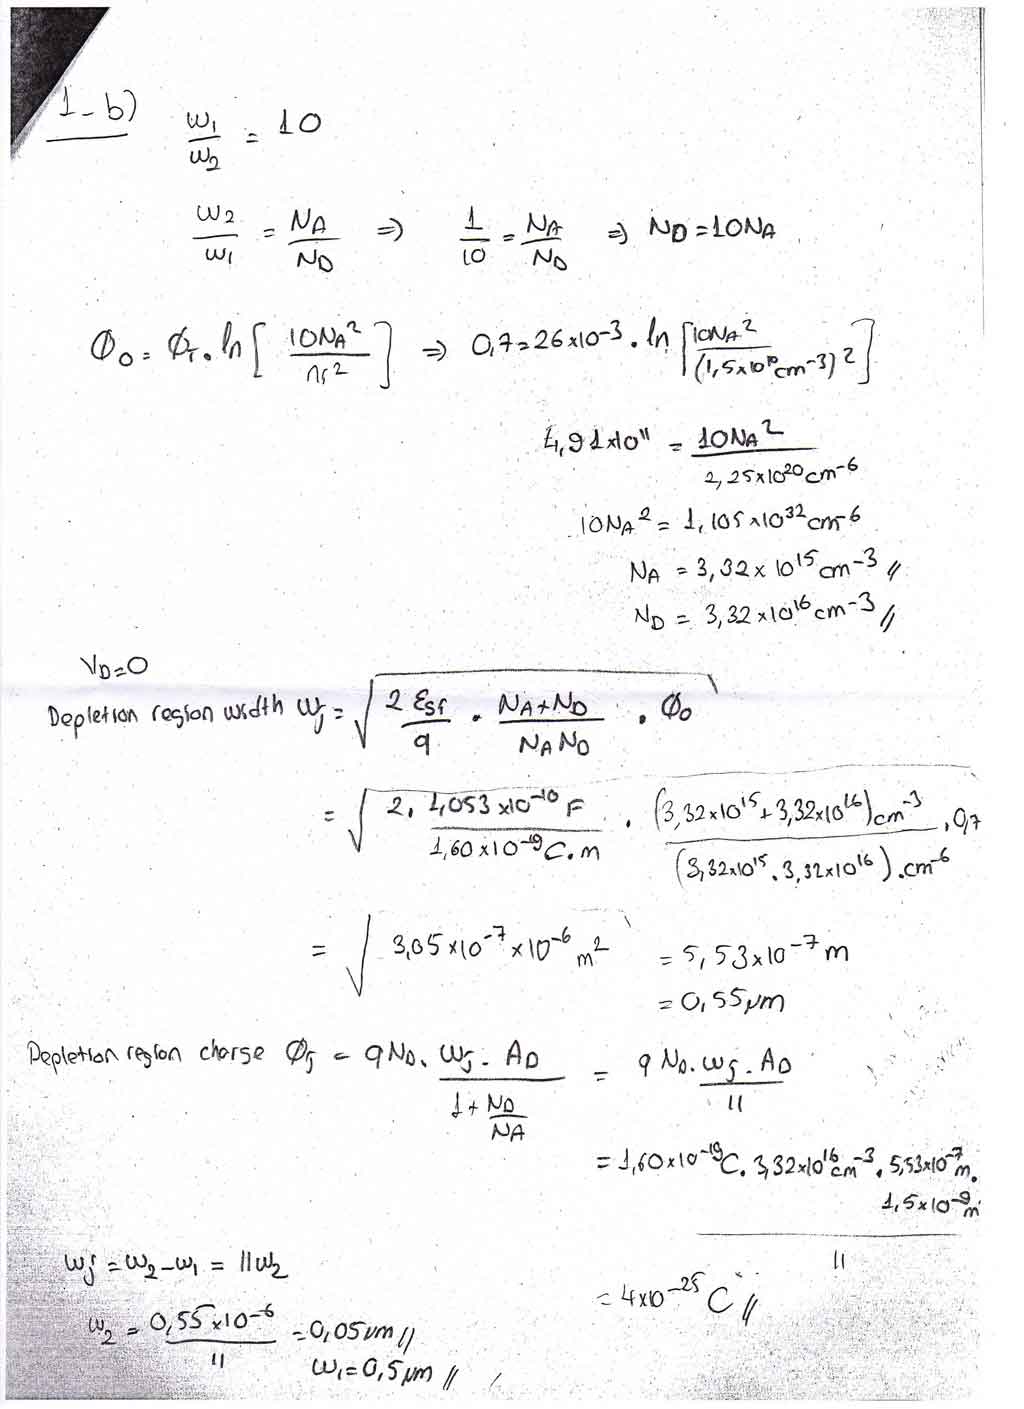 1-b) w₁/w₂ = 10
w₂/w₁ = NA/ND ⇒ 1/10 = NA/ND ⇒ ND = 10NA
Ø₀ = Ø_T . ln [ 10NA² / ni² ] ⇒ 0,7 = 26x10⁻³ . ln [ 10NA² / (1,5x10¹⁰cm-3)² ]
4,91x10¹¹ = 10NA² / 2,25x10²⁰cm⁻⁶
10NA² = 1,105x10³² cm-6
NA = 3,32x10¹⁵ cm-3 //
ND = 3,32x10¹⁶ cm-3 //
VD=0
Depletion region width Wj = √( 2 Esi / q . (NA+ND) / (NA ND) . Ø₀ )
= √( 2. 1,053x10⁻¹⁰ F / 1,60x10⁻¹⁹ C.m . (3,32x10¹⁵+3,32x10¹⁶)cm⁻³ / (3,32x10¹⁵.3,32x10¹⁶).cm⁻⁶ .0,7 )
= √( 3,05x10⁻⁷x10⁻⁶ m² ) = 5,53x10⁻⁷ m
= 0,55μm
Depletion region charge Øj = qND. Wj. AD / (1+ ND/NA) = q ND. Wj. AD / 11
= 1,60x10⁻¹⁹C. 3,32x10¹⁶cm⁻³. 5,53x10⁻⁷m.
1,5x10⁻⁹m
11
= 4x10⁻²⁵ C //
Wj = w₂-w₁ = 11w₂
w₂ = 0,55x10⁻⁶ / 11 = 0,05μm //
w₁ = 0,5μm //